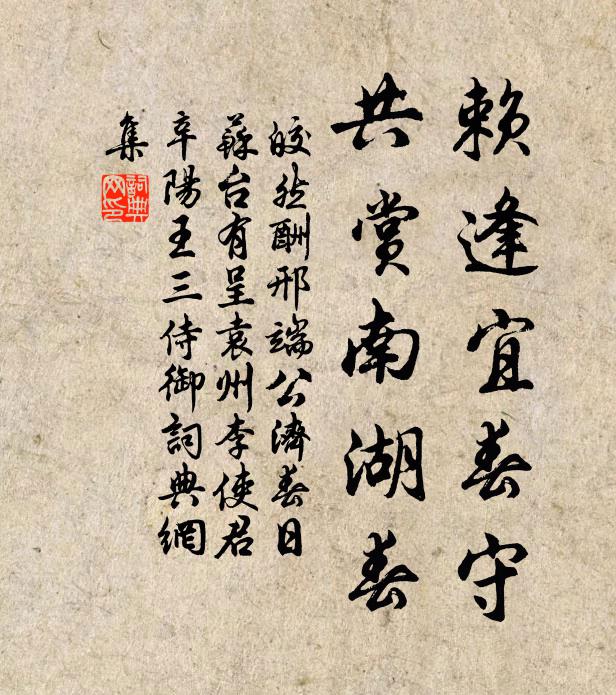 賴逢宜春守
共賞南湖春
皎然酬邢端公濟春日
蘇台有呈袁州李使君
辛陽王三侍御詞典網
集
詞典
网印